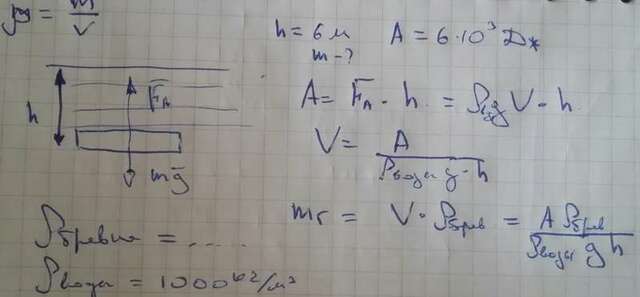 ρ = m/V
h = 6 м    A = 6·10³ Дж
m - ?
h
F̅_A
mg̅
A = F̅_A · h = ρ g V · h
V = A / (ρводы g · h)
mг = V · ρбрев = A ρбрев / (ρводы g h)
ρбревна = ....
ρводы = 1000 кг/м³